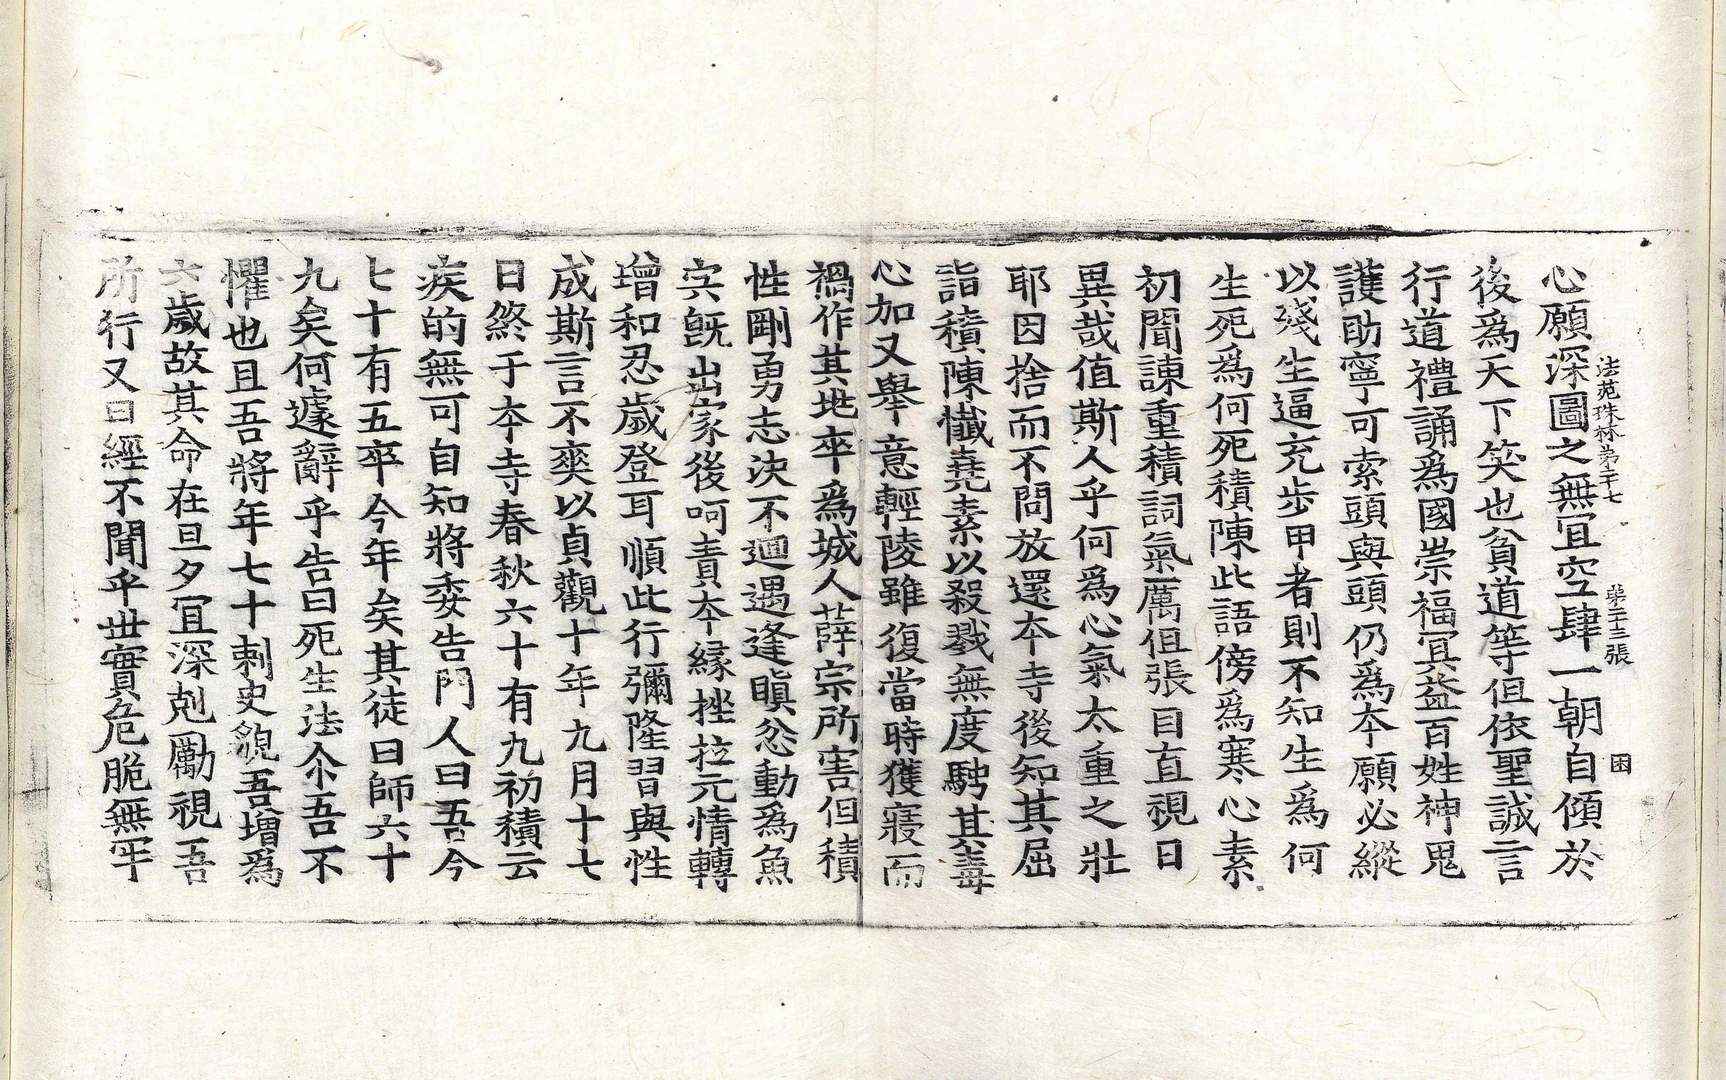 法苑珠林第二十七　第二十三張　困
心願深圖之無冝空肆一朝自傾於
後爲天下笑也貧道等但依聖誠言
行道禮誦爲國崇福冥益百姓神鬼
護助寧可索頭與頭仍爲本願必縱
以殘生逼充步甲者則不知生爲何
生死爲何死積陳此語傍爲寒心素
初聞諫重積詞氣厲但張目直視曰
異哉值斯人乎何爲心氣太重之壯
耶因捨而不問放還本寺後知其屈
詣積陳懺堯素以殺戮無度騁其毒
心加又舉意輕陵雖復當時獲寢而
禍作其兆卒爲城人薛宗所害但積
性剛勇志決不迴遇逢瞋忿動爲魚
突旣出家後呵責本緣挫拉元情轉
增和忍歲登耳順此行彌隆習與性
成斯言不爽以貞觀十年九月十七
日終于本寺春秋六十有九初積云
疾的無可自知將委告門人曰吾今
七十有五卒今年矣其徒曰師六十
九矣何遽辭乎告曰死生法尒吾不
懼也且吾將年七十刺史貌吾增爲
六歲故其命在旦夕冝深剋勵視吾
所行又曰經不聞乎世實危脆無牢